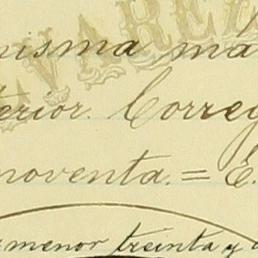 misma ma
terior. Correg
noventa. = E.
menor treinta y